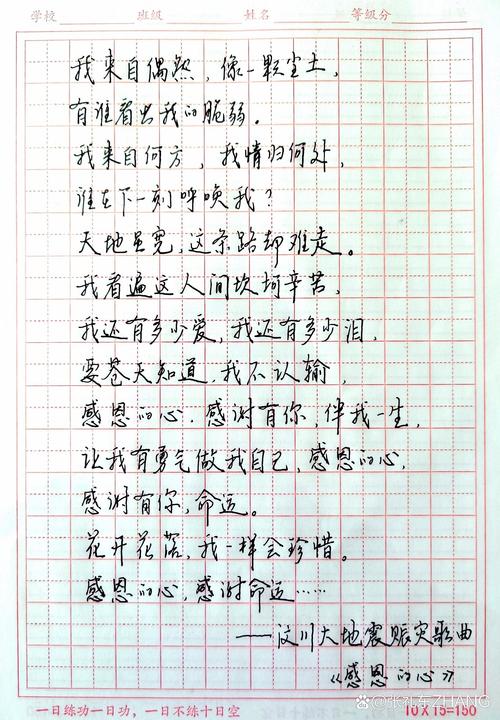 学校 班级 姓名 等级分
我来自偶然，像一颗尘土，
有谁看出我的脆弱。
我来自何方，我情归何处，
谁在下一刻呼唤我？
天地虽宽，这条路却难走。
我看遍这人间坎坷辛苦，
我还有多少爱，我还有多少泪，
要苍天知道，我不认输，
感恩的心，感谢有你，伴我一生，
让我有勇气做我自己，感恩的心，
感谢有你，命运。
花开花落，我一样会珍惜。
感恩的心，感谢命运……
——汶川大地震赈灾歌曲
《感恩的心》
一日练功一日功，一日不练十日空 10X15=150